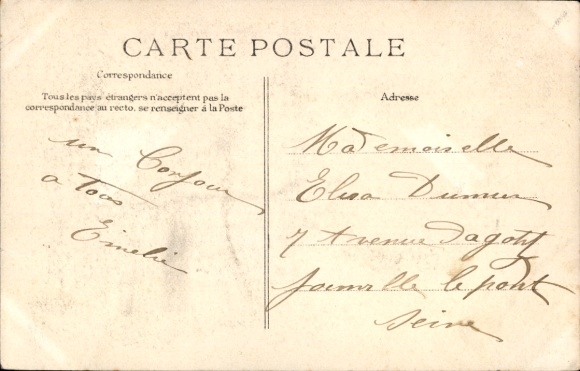 CARTE POSTALE
Correspondance
Tous les pays étrangers n'acceptent pas la
correspondance au recto. se renseigner à la Poste
un Bonjour
a Tous
Emelie
Adresse
Mademoiselle
Elisa
7 Avenue
Joinville le pont
Seine